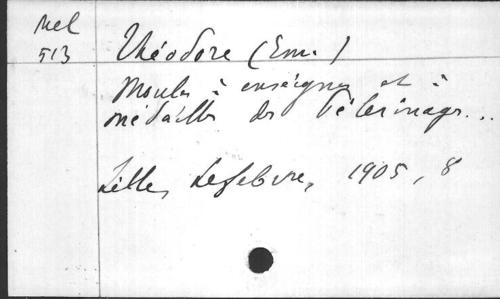 Mel
513
Théodore (Em.)
Moules à enseignes et à
médailles de Pèlerinages...
Lille, Lefebvre, 1905, 8